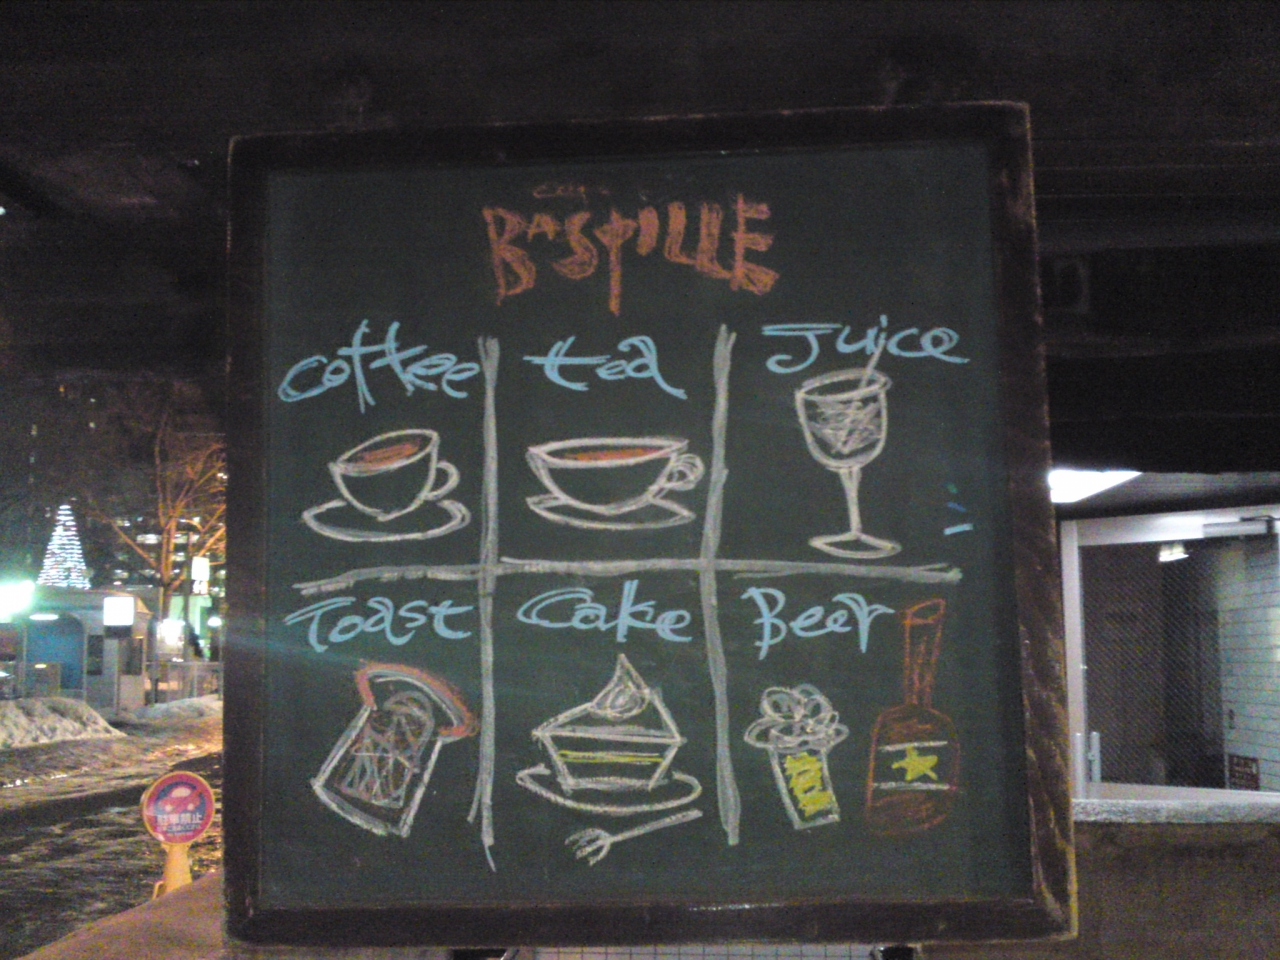 BASTILLE
coffee
tea
Juice
Toast
Cake
Beer
駐車禁止